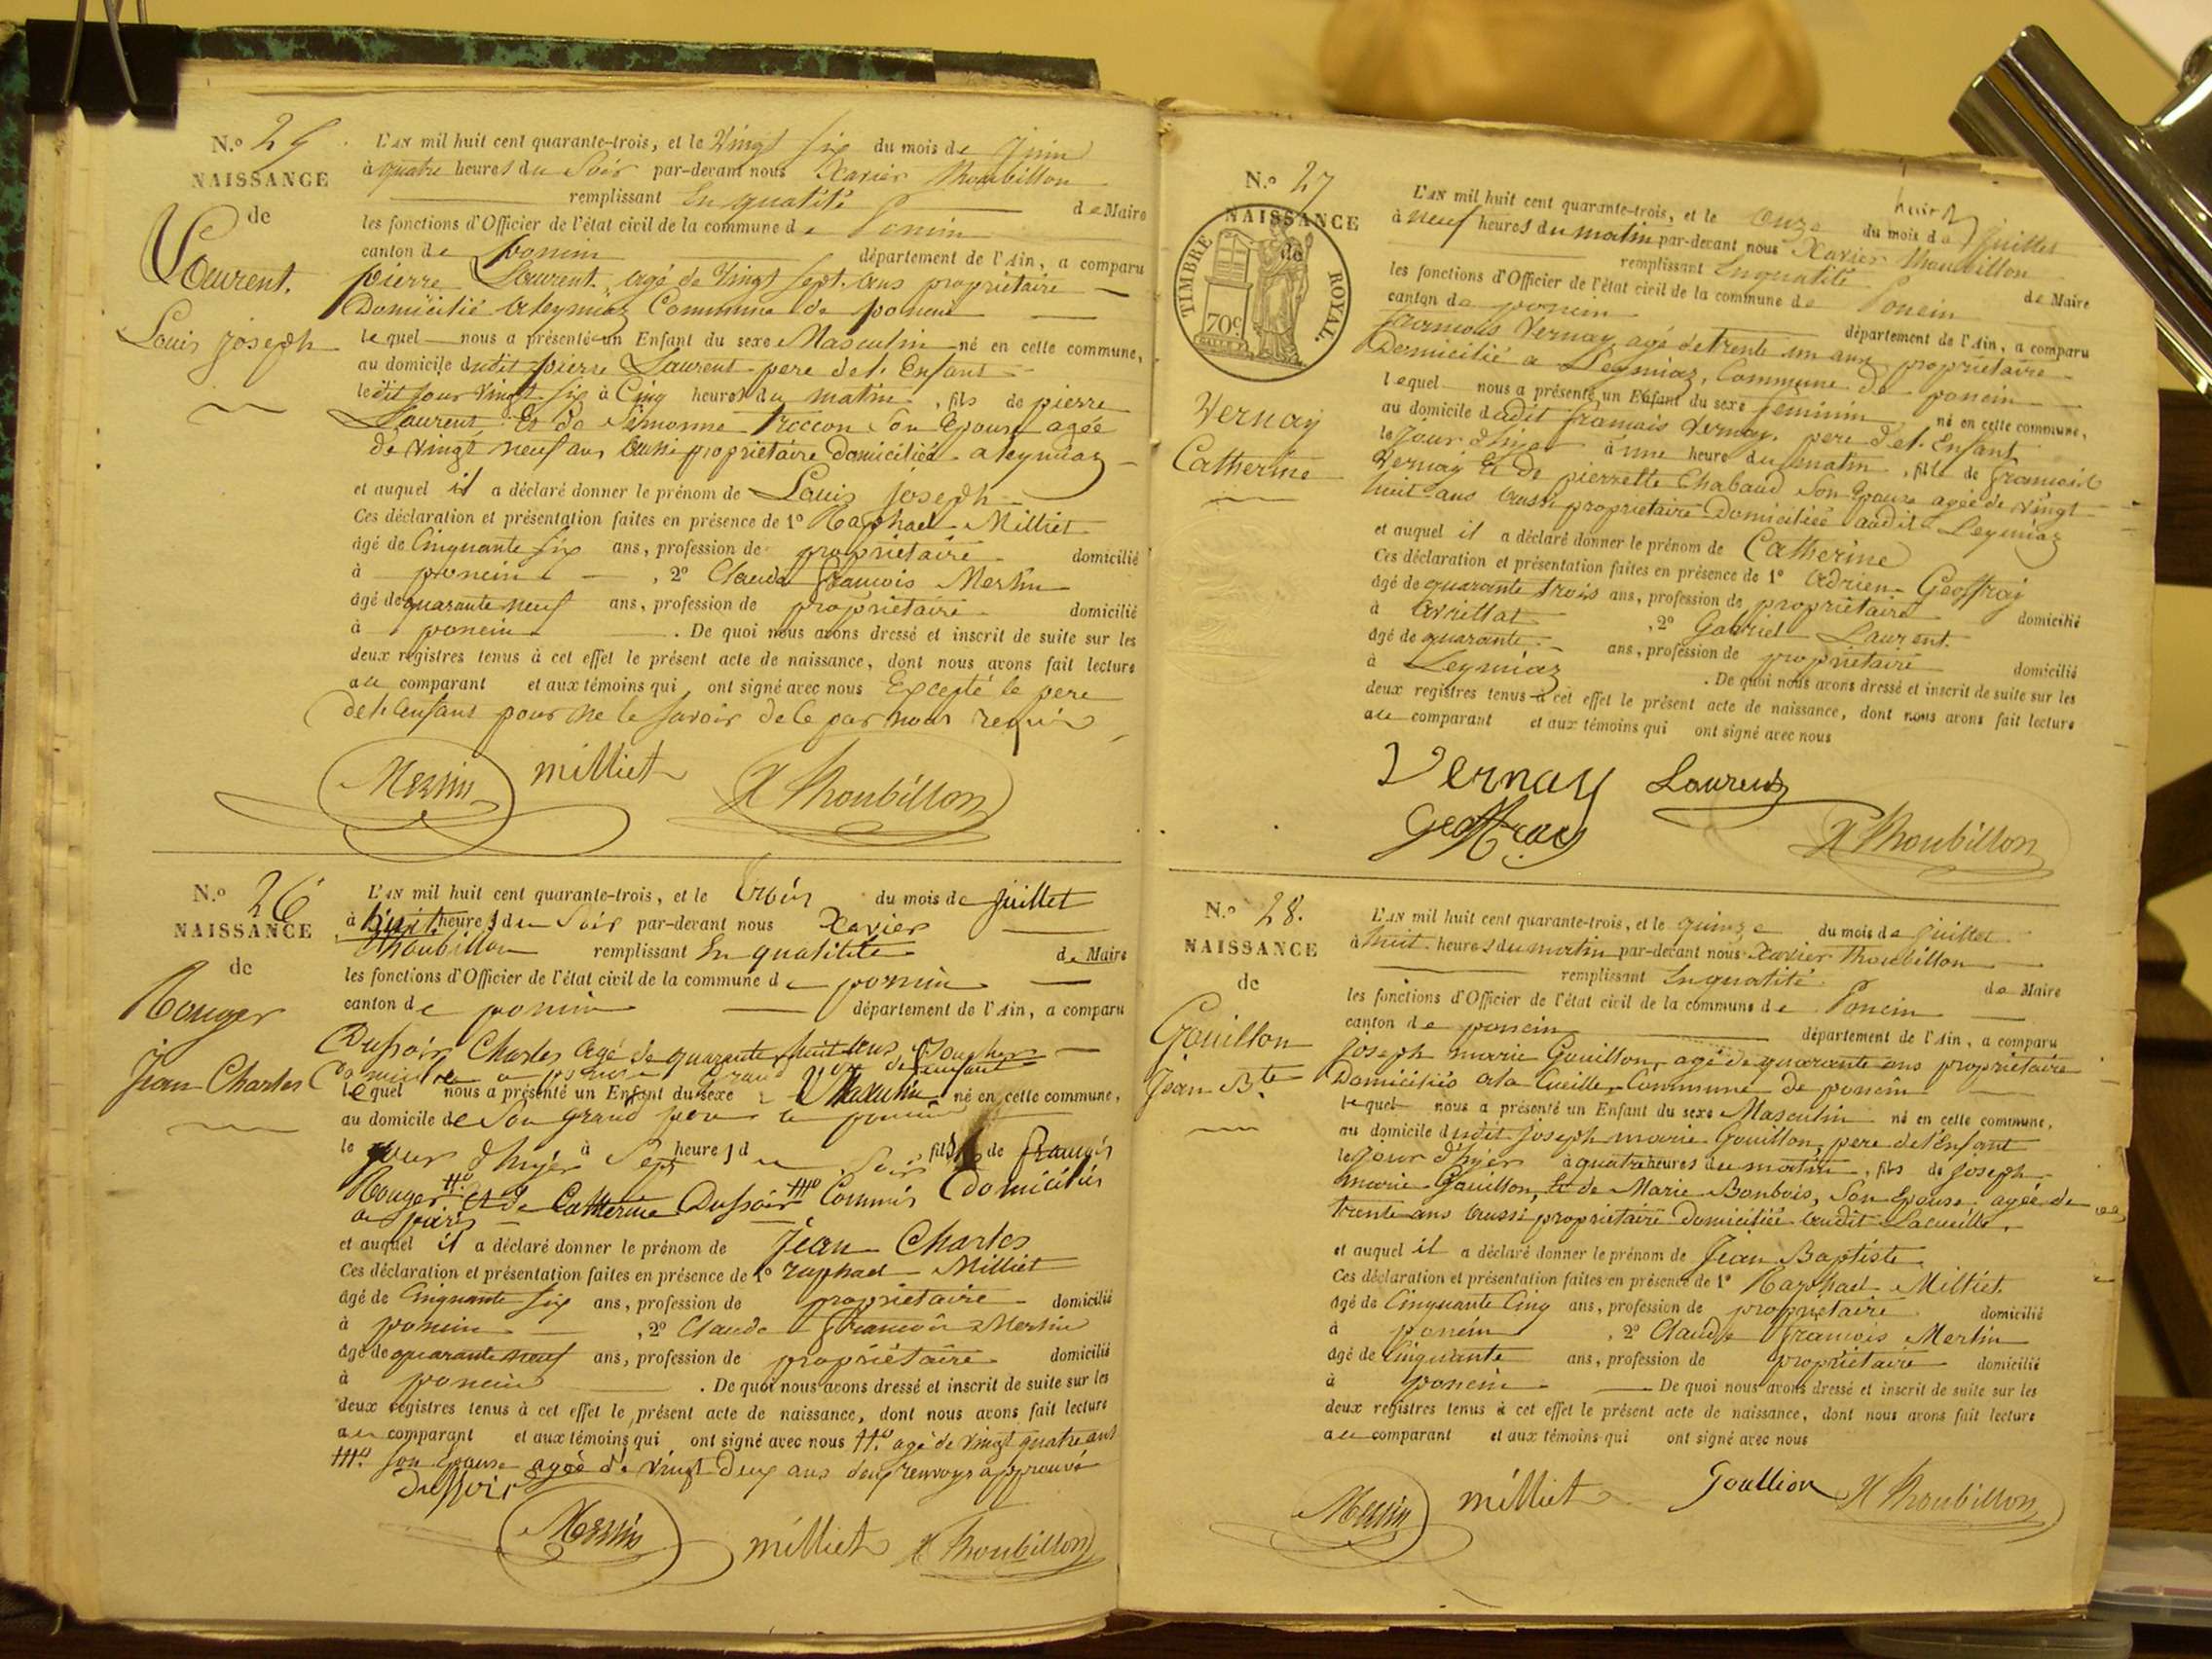 N.o 25
NAISSANCE
de
Laurent.
Louis joseph
L'AN mil huit cent quarante-trois, et le Vingt six du mois de Juin
à quatre heures du Soir par-devant nous Xavier Thoubillon
remplissant En qualité de Maire
les fonctions d'Officier de l'état civil de la commune de Poncin
canton de poncin département de l'Ain, a comparu
pierre Laurent, agé de Vingt sept ans propriétaire
Domicilié a Leymiaz Commune de poncin
lequel nous a présenté un Enfant du sexe Masculin né en cette commune,
au domicile dudit pierre Laurent pere de l'Enfant
ledit jour vingt six à Cinq heures du matin, fils de pierre
Laurent Et de Simonne Troccon Son Epouse agée
de vingt neuf ans aussi propriétaire domiciliée a Leymiaz
et auquel il a déclaré donner le prénom de Louis joseph
Ces déclaration et présentation faites en présence de 1o Raphael Milliet
âgé de Cinquante six ans, profession de propriétaire domicilié
à poncin, 2o Claude francois Merlin
âgé de quarante neuf ans, profession de propriétaire domicilié
à poncin. De quoi nous avons dressé et inscrit de suite sur les
deux registres tenus à cet effet le présent acte de naissance, dont nous avons fait lecture
au comparant et aux témoins qui ont signé avec nous Excepté le pere
de l'enfant pour ne le savoir de ce par nous requis
Merlin milliet X Thoubillon
N.o 26
NAISSANCE
de
Rouger
Jean Charles
L'AN mil huit cent quarante-trois, et le trois du mois de juillet
à huit heures du Soir par-devant nous Xavier
Thoubillon remplissant En qualitité de Maire
les fonctions d'Officier de l'état civil de la commune de poncin
canton de poncin département de l'Ain, a comparu
Dussoir Charles agé de quarante huit ans
Domicilié a poncin grand de l'enfant
lequel nous a présenté un Enfant du sexe Masculin né en cette commune,
au domicile de Son grand pere a poncin
le jour d'hyer à Sept heures du Soir, fils de françois
Rouger et de Catherine Dussoir Commis Domiciliés
a paris
et auquel il a déclaré donner le prénom de Jean Charles
Ces déclaration et présentation faites en présence de 1o raphael Milliet
âgé de Cinquante six ans, profession de propriétaire domicilié
à poncin, 2o Claude francois Merlin
âgé de quarante neuf ans, profession de propriétaire domicilié
à poncin. De quoi nous avons dressé et inscrit de suite sur les
deux registres tenus à cet effet le présent acte de naissance, dont nous avons fait lecture
au comparant et aux témoins qui ont signé avec nous agé de vingt quatre ans
son Epouse agée de vingt deux ans deux renvoys approuvé
dussoir
Merlin milliet X Thoubillon
N.o 27
NAISSANCE
de
TIMBRE ROYAL.
70c
Vernay
Catherine
L'AN mil huit cent quarante-trois, et le onze du mois de Juillet
à neuf heures du matin par-devant nous Xavier Thoubillon
remplissant En qualité de Maire
les fonctions d'Officier de l'état civil de la commune de Poncin
canton de poncin département de l'Ain, a comparu
francois Vernay agé de trente un ans propriétaire
Domicilié a Leymiaz, Commune de poncin
lequel nous a présenté un Enfant du sexe féminin né en cette commune,
au domicile dudit francois Vernay, pere de l'Enfant
le jour d'hyer à une heure du matin, fille de francois
Vernay Et de pierrette Chabaud Son Epouse agée de vingt
huit ans aussi propriétaire Domiciliée audit Leymiaz
et auquel il a déclaré donner le prénom de Catherine
Ces déclaration et présentation faites en présence de 1o adrien Geoffray
âgé de quarante trois ans, profession de propriétaire domicilié
à avrillat, 2o Gabriel Laurent.
âgé de quarante ans, profession de propriétaire domicilié
à Leymiaz. De quoi nous avons dressé et inscrit de suite sur les
deux registres tenus à cet effet le présent acte de naissance, dont nous avons fait lecture
au comparant et aux témoins qui ont signé avec nous
Vernay Laurent
Geoffray X Thoubillon
N.o 28.
NAISSANCE
de
Gouillon
Jean Bte
L'AN mil huit cent quarante-trois, et le quinze du mois de juillet
à huit heures du matin par-devant nous Xavier Thoubillon
remplissant En qualité de Maire
les fonctions d'Officier de l'état civil de la commune de Poncin
canton de poncin département de l'Ain, a comparu
joseph marie Gouillon, agé de quarante ans propriétaire
Domicilié a la Cueille, Commune de poncin
lequel nous a présenté un Enfant du sexe Masculin né en cette commune,
au domicile dudit joseph marie Gouillon, pere de l'Enfant
le jour d'hyer à quatre heures du matin, fils de joseph
marie Gouillon, Et de Marie Bonbois, Son Epouse, agée de
trente ans aussi propriétaire Domiciliée audit Lacueille.
et auquel il a déclaré donner le prénom de Jean Baptiste
Ces déclaration et présentation faites en présence de 1o Raphael Milliet
âgé de Cinquante Cinq ans, profession de propriétaire domicilié
à poncin, 2o Claude francois Merlin
âgé de Cinquante ans, profession de propriétaire domicilié
à poncin De quoi nous avons dressé et inscrit de suite sur les
deux registres tenus à cet effet le présent acte de naissance, dont nous avons fait lecture
au comparant et aux témoins qui ont signé avec nous
Merlin milliet Goullion X Thoubillon